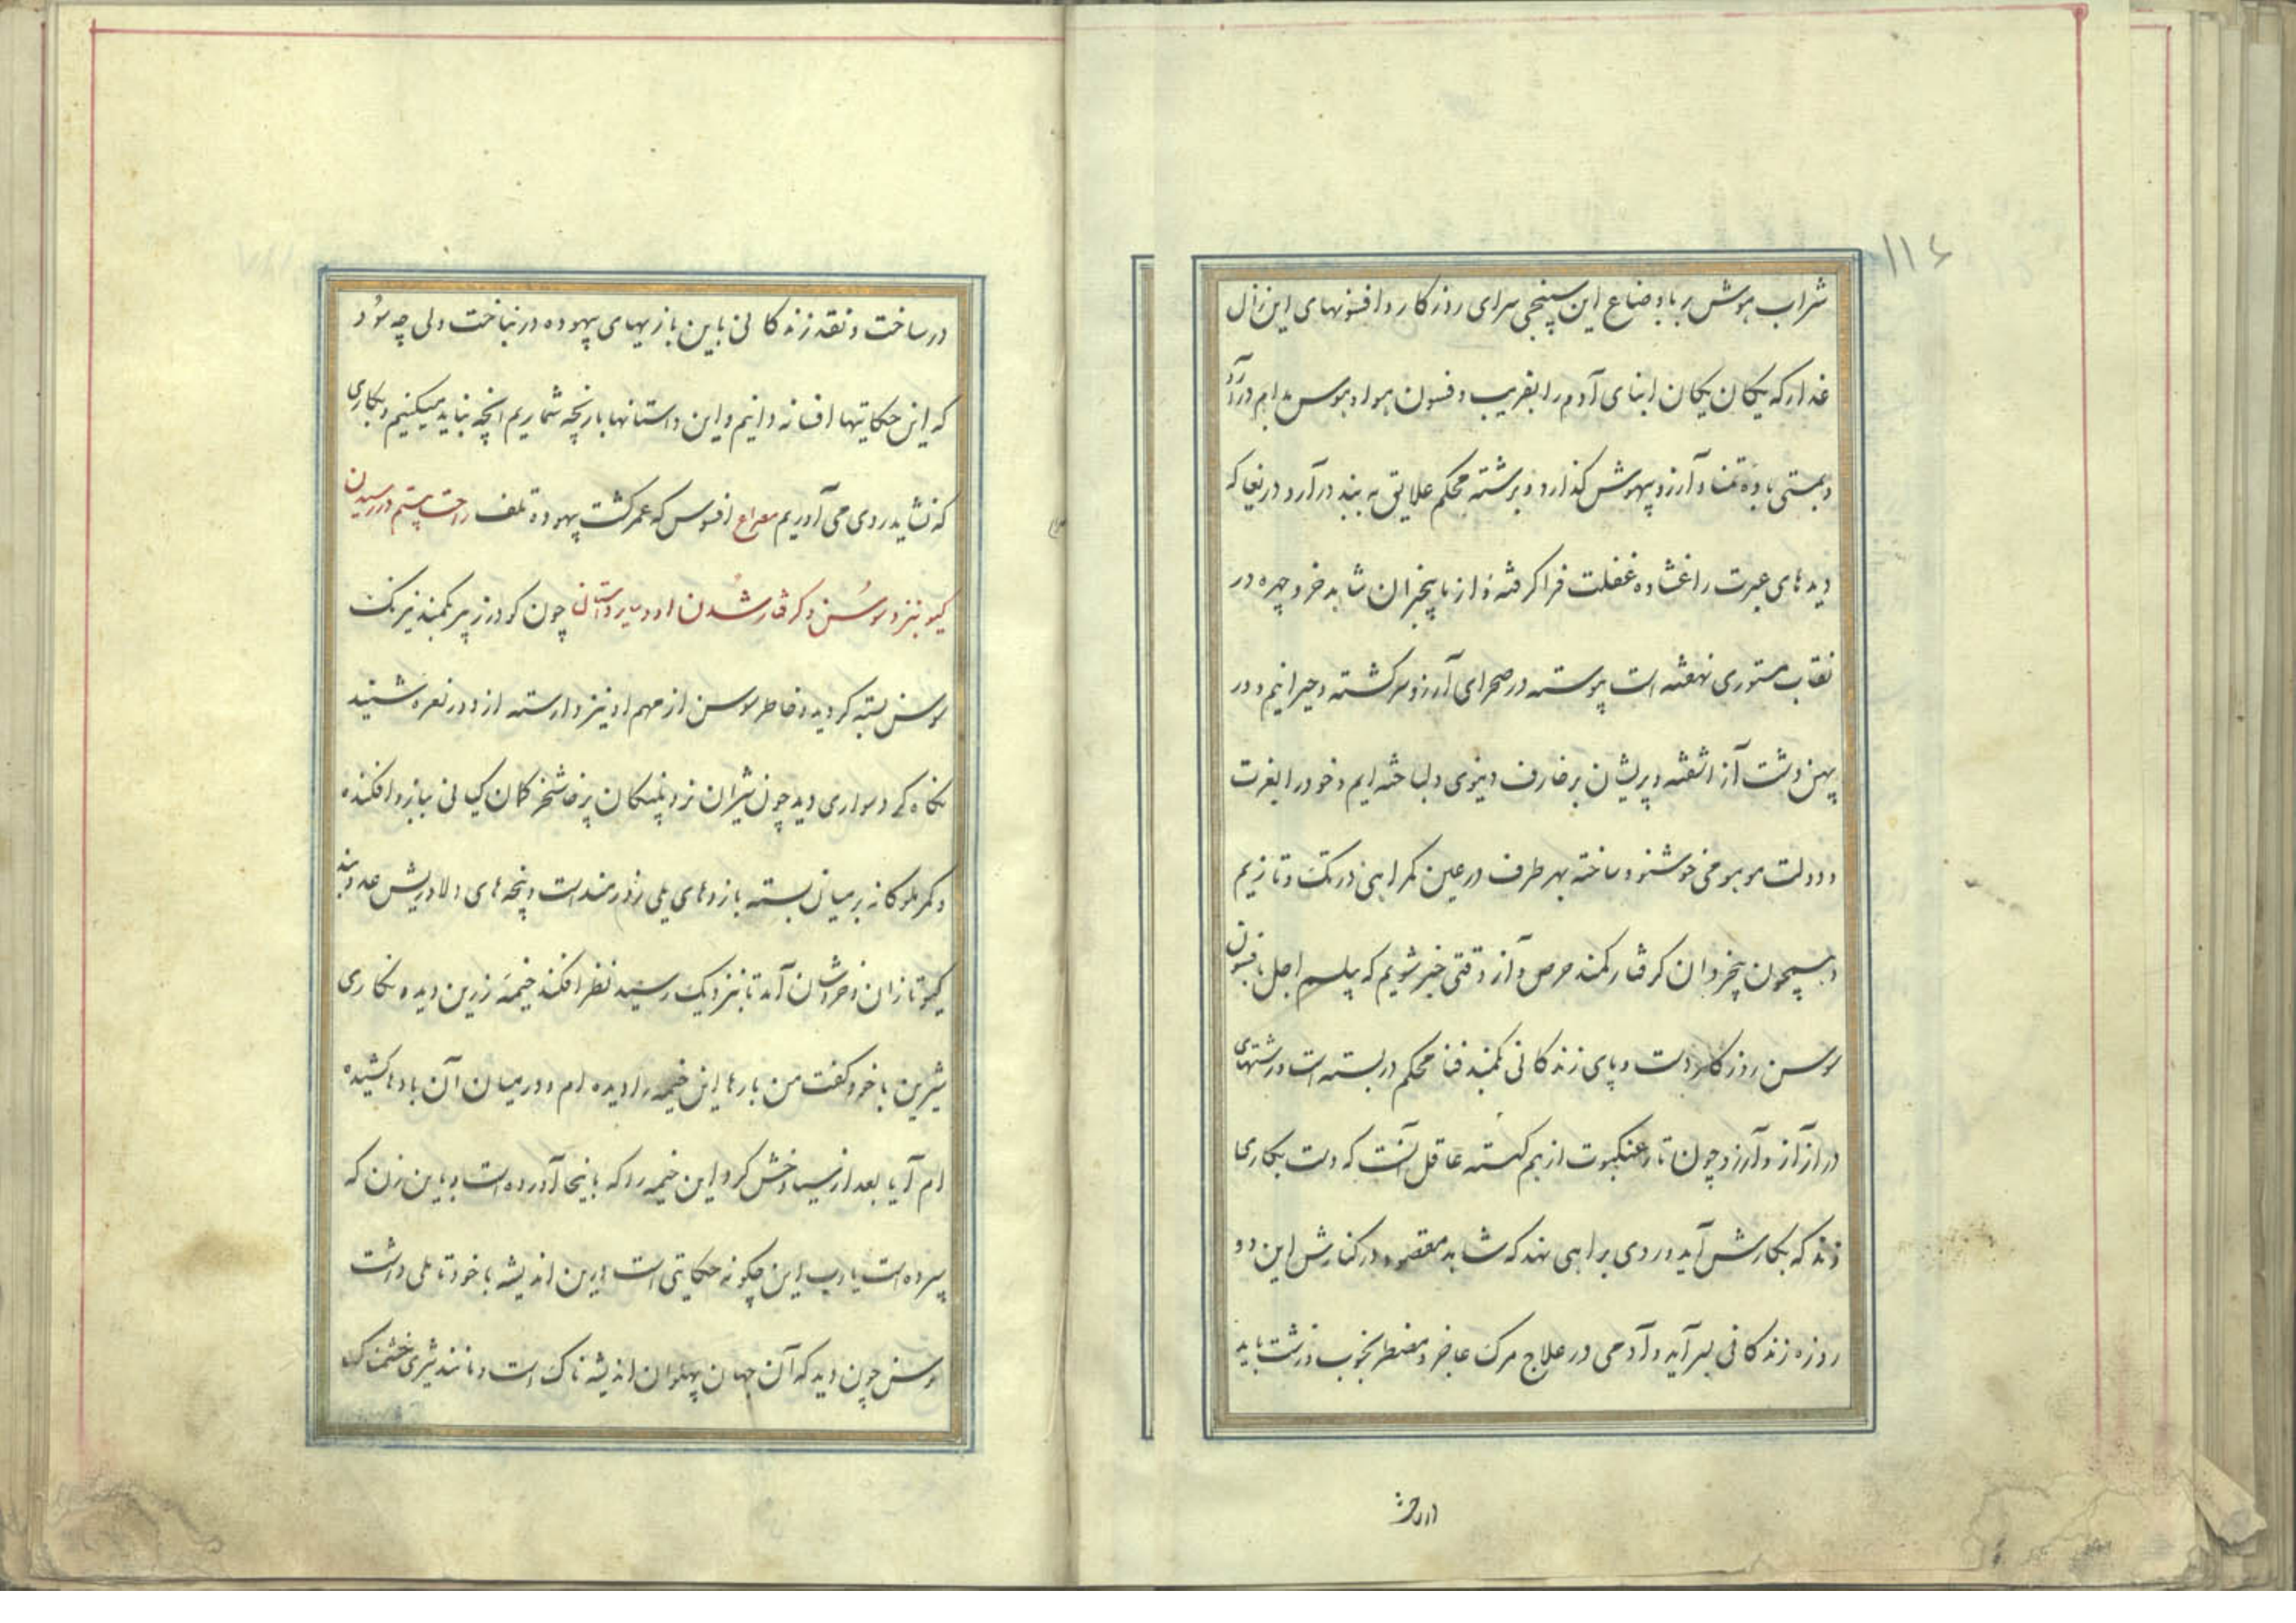 ۱۱۶
شراب هوش ربا باوضاع این سپنجی سرای روزکار و افسونهای این زال
غدار که یکان یکان ابنای آدم را بفریب و فسون هوا و هوس بدام درآرد
و بمستی باده تمنا و آرزو بیهوش کذارد و برشته محکم علایق به بند درآرد دریغا که
دیدهای عبرت را غشاوه غفلت فرا کرفته و از ما بیخبران شاهد خرد چهره در
نقاب مستوری نهفته است پیوسته در صحرای آرزو سرکشته و حیرانیم و در
پهن دشت آز اشفته و پریشان بزخارف دنیوی دلباخته ایم و خود را بعزت
و دولت موهومی خوشنود ساخته بهر طرف در عین کمراهی در تک و تازیم
و همچون بیخردان کرفتار کمند حرص و آز وقتی خبر شویم که پیلسم اجل بافسون
سوسن روزکار دست و پای زندکانی بکمند فنا محکم در بسته است و رشتهای
دراز آز و آرزو چون تار عنکبوت از هم کسسته عاقل آنست که دست بکاری
زند که بکارش آید و روی براهی نهد که شاهد مقصود در کنارش این دو
روزه زندکانی بسر آید و آدمی در علاج مرک عاجز و مضطر بخوب و زشت باید
در ساخت
در ساخت و نقد زندکانی باین بازیهای بیهوده در نباخت ولی چه سود
که این حکایتها افسانه دانیم و این داستانها بازیچه شماریم انچه نباید میکنیم و بکاری
که نشاید روی می آوریم مصراع افسوس که عمر کشت بیهوده تلف در رسیدن
کیو بنزد سوسن و کرفتار شدن او چون کودرز پیر بکمند نیرنک
سوسن بسته کردید و خاطر سوسن از مهم او نیز وارسته از دور نعره شنید
نکاه کرد سواری دید چون شیران نر و پلنکان پرخاشخر کمان کیانی ببازو افکنده
و کمر ملوکانه بر میان بسته بازوهای یلی زورمند است و پنجه های دلاوریش عدو بند
کیو تازان و خروشان آمد تا بنزدیک رسید نظر افکند خیمه زرین دید و نکاری
شیرین با خود کفت من بارها این خیمه را دیده ام و در میان آن بادها کشیده
ام آیا بعد از سیاوخش کرد این خیمه را که باینجا آورده است و باین زن که
سپرده است یا رب این چکونه حکایتی است درین اندیشه با خود تاملی داشت
سوسن چون دید که آن جهان پهلوان اندیشه ناک است و مانند شیری خشمناک